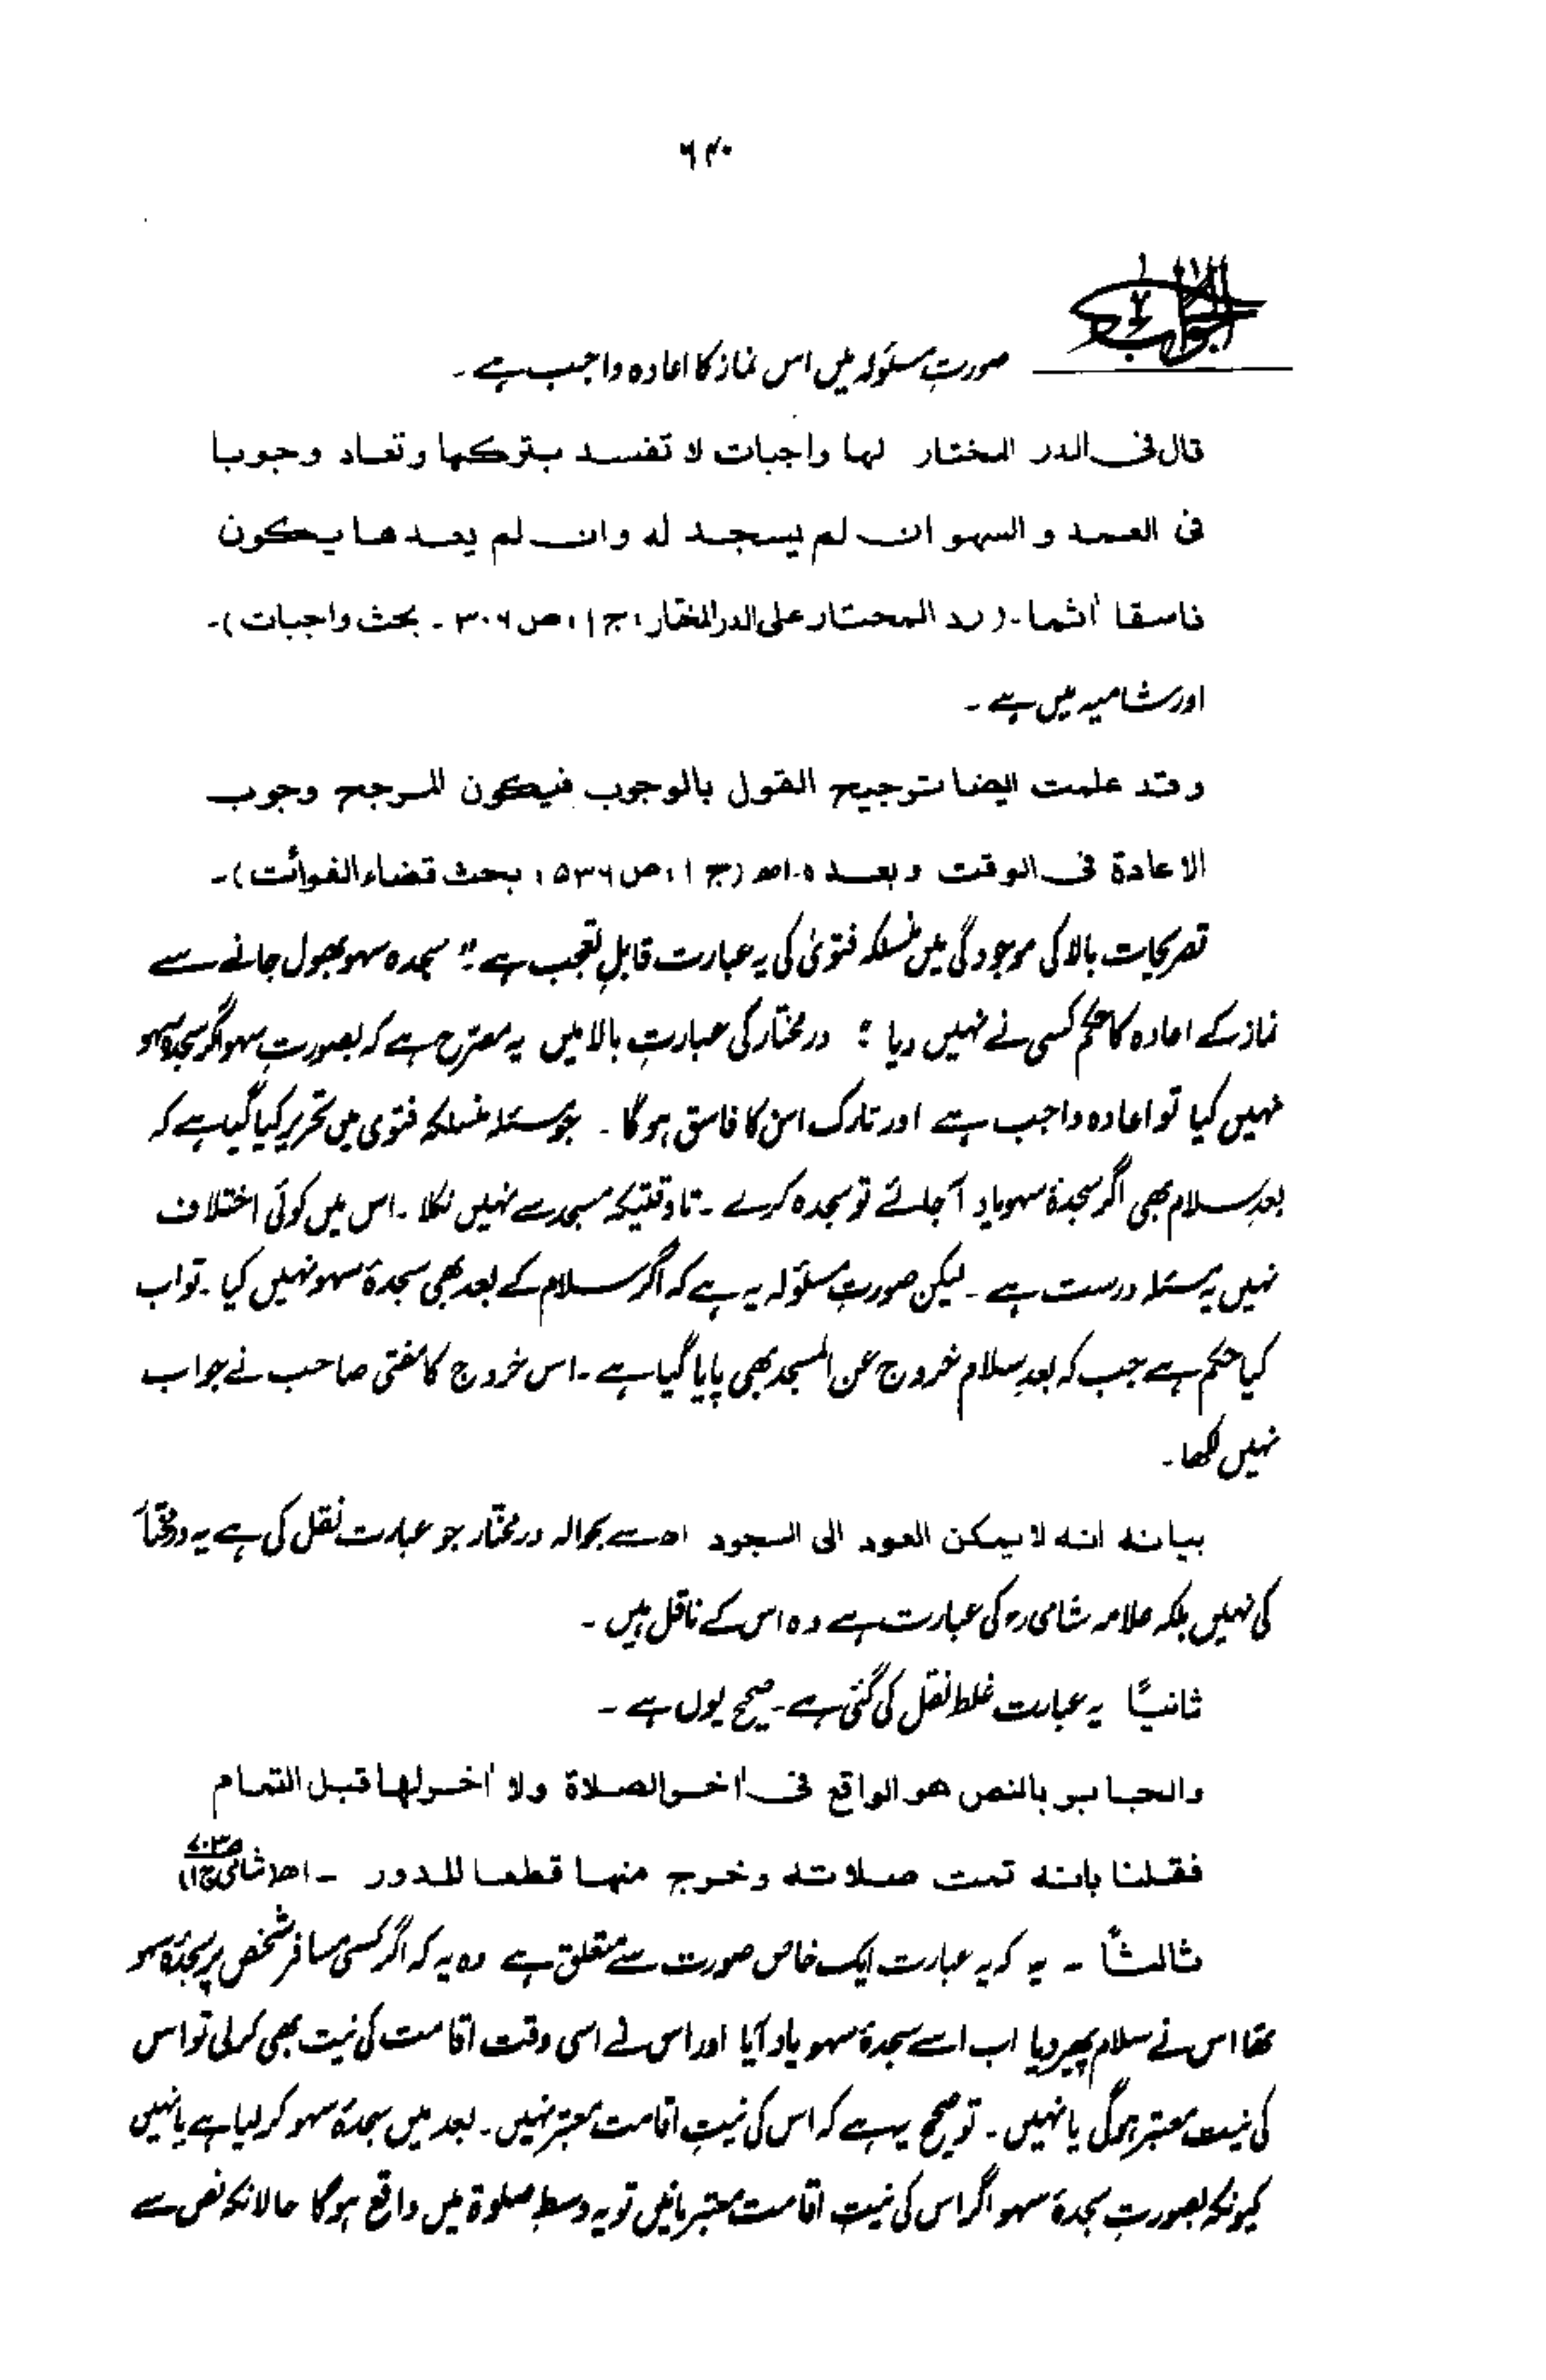 ۶۴۰
الجواب
صورتِ مسئولہ میں اس نماز کا اعادہ واجب ہے ۔
قال فی الدر المختار لها واجبات لا تفسد بتركها وتعاد وجوبا
فی العمد و السهو ان لم يسجد له وان لم يعدها يكون
فاسقا آثما ۔ (رد المحتار علی الدر المختار، ج۱، ص۳۰۶ ۔ بحث واجبات)۔
اور شامیہ میں ہے ۔
وقد علمت ایضا ترجیح القول بالوجوب فیکون المرجح وجوب
الاعادة فی الوقت وبعده ۔ اھ (ج۱، ص۵۳۶، بحث قضاء الفوائت)۔
تصریحات بالا کی موجودگی میں منسلکہ فتویٰ کی یہ عبارت قابلِ تعجب ہے " سجدہ سہو بھول جانے سے
نماز کے اعادہ کا حکم کسی نے نہیں دیا " درمختار کی عبارتِ بالا میں یہ مصرّح ہے کہ بصورتِ سہو اگر سجدۂ سہو
نہیں کیا تو اعادہ واجب ہے اور تارک اس کا فاسق ہوگا ۔ جو مسئلہ منسلکہ فتوی میں تحریر کیا گیا ہے کہ
بعدِ سلام بھی اگر سجدۂ سہو یاد آجائے تو سجدہ کرے ۔ تا وقتیکہ مسجد سے نہیں نکلا ۔ اس میں کوئی اختلاف
نہیں یہ مسئلہ درست ہے ۔ لیکن صورتِ مسئولہ یہ ہے کہ اگر سلام کے بعد بھی سجدۂ سہو نہیں کیا ۔ تو اب
کیا حکم ہے جب کہ بعدِ سلام خروج عن المسجد بھی پایا گیا ہے ۔ اس خروج کا مفتی صاحب نے جواب
نہیں لکھا ۔
بيانه انه لا يمكن العود الی السجود اھ سے بحوالہ درمختار جو عبارت نقل کی ہے یہ درمختار
کی نہیں بلکہ علامہ شامی رح کی عبارت ہے وہ اس کے ناقل ہیں ۔
ثانیًا یہ عبارت غلط نقل کی گئی ہے ۔ صحیح یوں ہے ۔
والجابر بالنص هو الواقع فی آخر الصلاة ولا آخر لها قبل التمام
فقلنا بانه تمت صلاته وخرج منها قطعا للدور ۔ اھ (شامی ج۱، ص۷۰۳)
ثالثًا ۔ یہ کہ یہ عبارت ایک خاص صورت سے متعلق ہے وہ یہ کہ اگر کسی مسافر شخص پر سجدۂ سہو
تھا اس نے سلام پھیر دیا اب اسے سجدۂ سہو یاد آیا اور اس نے اسی وقت اقامت کی نیت بھی کرلی تو اس
کی نیت معتبر ہوگی یا نہیں ۔ تو صحیح یہ ہے کہ اس کی نیتِ اقامت معتبر نہیں ۔ بعد میں سجدۂ سہو کرلیا ہے یا نہیں
کیونکہ بصورتِ سجدۂ سہو اگر اس کی نیتِ اقامت معتبر مانیں تو یہ وسطِ صلوٰۃ میں واقع ہوگا حالانکہ نص سے